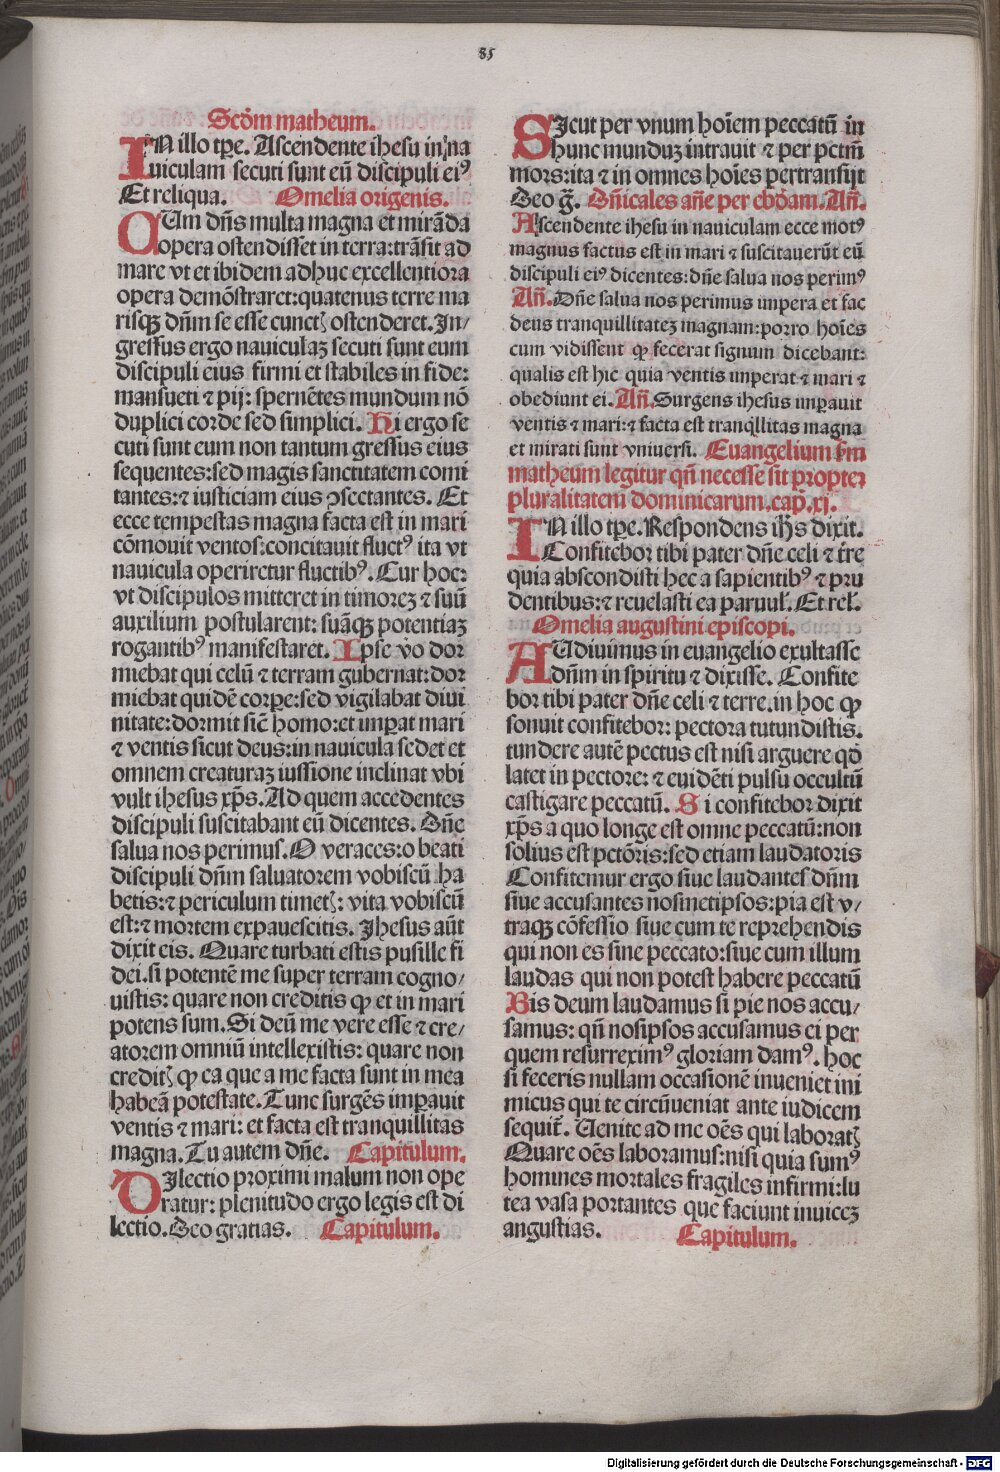 85
Scḋm matheum.
IN illo tꝑe. Ascendente ihesu in na
uiculam secuti sunt eū discipuli eiꝰ
Et reliqua. Omelia origenis.
CUm dn̄s multa magna et mirāda
opera ostendisset in terra: trāsit ad
mare vt et ibidem adhuc excellentiora
opera demōstraret: quatenus terre ma
risqꝫ dn̄m se esse cunctꝭ ostenderet. In/
gressus ergo nauiculaꝫ secuti sunt eum
discipuli eius firmi et stabiles in fide:
mansueti ⁊ pij: spernētes mundum nō
duplici corde sed simplici. Hi ergo se
cuti sunt eum non tantum gressus eius
sequentes: sed magis sanctitatem comi
tantes: ⁊ iusticiam eius ꝯsectantes. Et
ecce tempestas magna facta est in mari
cōmouit ventos: concitauit fluctꝰ ita vt
nauicula operiretur fluctibꝰ. Cur hoc:
vt discipulos mitteret in timoreꝫ ⁊ suū
auxilium postularent: suāqꝫ potentiaꝫ
rogantibꝰ manifestaret. Ipse vo dor
miebat qui celū ⁊ terram gubernat: dor
miebat quidē corpe: sed vigilabat diui
nitate: dormit sic̄ homo: et imꝑat mari
⁊ ventis sicut deus: in nauicula sedet et
omnem creaturaꝫ iussione inclinat vbi
vult ihesus xp̄s. Ad quem accedentes
discipuli suscitabant eū dicentes. Dn̄e
salua nos perimus. O veraces: o beati
discipuli dn̄m saluatorem vobiscū ha
betis: ⁊ periculum timetꝭ: vita vobiscū
est: ⁊ mortem expauescitis. Ihesus aūt
dixit eis. Quare turbati estis pusille fi
dei. si potentē me super terram cogno/
uistis: quare non creditis ꝙ et in mari
potens sum. Si deū me vere esse ⁊ cre/
atorem omniū intellexistis: quare non
creditꝭ ꝙ ea que a me facta sunt in mea
habeā potestate. Tunc surgēs imꝑauit
ventis ⁊ mari: et facta est tranquillitas
magna. Tu autem dn̄e. Capitulum.
DIlectio proximi malum non ope
ratur: plenitudo ergo legis est di
lectio. Deo gratias. Capitulum.
SIcut per vnum hoīem peccatū in
hunc munduꝫ intrauit ⁊ per pctm̄
mors: ita ⁊ in omnes hoīes pertransijt
Deo ḡ. Dn̄icales an̄e per ebd̄am. An̄.
Ascendente ihesu in nauiculam ecce motꝰ
magnus factus est in mari ⁊ suscitauerūt eū
discipuli eiꝰ dicentes: dn̄e salua nos perimꝰ
An̄. Dn̄e salua nos perimus impera et fac
deus tranquillitateꝫ magnam: porro hoīes
cum vidissent ꝙ fecerat signum dicebant:
qualis est hic quia ventis imperat ⁊ mari ⁊
obediunt ei. An̄. Surgens ihesus imꝑauit
ventis ⁊ mari: ⁊ facta est tranq̇llitas magna
et mirati sunt vniuersi. Euangelium s̄m
matheum legitur qn̄ necesse sit propter
pluralitatem dominicarum. cap̄. xj.
IN illo tꝑe. Respondens ih̄s dixit.
Confitebor tibi pater dn̄e celi ⁊ tr̄e
quia abscondisti hec a sapientibꝰ ⁊ pru
dentibus: ⁊ reuelasti ea paruul̄. Et rel̄.
Omelia augustini episcopi.
AUdiuimus in euangelio exultasse
dn̄m in spiritu ⁊ dixisse. Confite
bor tibi pater dn̄e celi ⁊ terre. in hoc ꝙ
sonuit confitebor: pectora tutundistis.
tundere autē pectus est nisi arguere qḋ
latet in pectore: ⁊ euidēti pulsu occultū
castigare peccatū. Si confitebor dixit
xp̄s a quo longe est omne peccatū: non
solius est pctōris: sed etiam laudatoris
Confitemur ergo siue laudantes dn̄m
siue accusantes nosmetipsos: pia est v/
traqꝫ cōfessio siue cum te reprehendis
qui non es sine peccato: siue cum illum
laudas qui non potest habere peccatū
Bis deum laudamus si pie nos accu/
samus: qn̄ nosipsos accusamus ei per
quem resurreximꝰ gloriam damꝰ. hoc
si feceris nullam occasionē inueniet ini
micus qui te circūueniat ante iudicem
sequit̄. Uenite ad me oēs qui laboratꝭ
Quare oēs laboramus: nisi quia sumꝰ
homines mortales fragiles infirmi: lu
tea vasa portantes que faciunt inuiceꝫ
angustias. Capitulum.
Digitalisierung gefördert durch die Deutsche Forschungsgemeinschaft - DFG